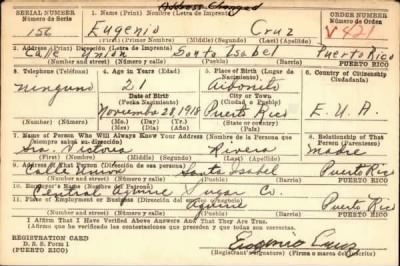 Address Changed
SERIAL NUMBER 1. Name (Print) Nombre (Letra de Imprenta) ORDER NUMBER
Número de Serie Número de Orden
156 Eugenio Cruz V 421
(First) (Primero) (Middle) (Segundo) (Last) (Apellido)
2. Address (Print) Dirección (Letra de Imprenta)
Calle Unión Santa Isabel Puerto Rico
(Number and street) (Número y calle) (Town) (Pueblo) PUERTO RICO
3. Telephone (Teléfono) 4. Age in Years (Edad) 5. Place of Birth (Lugar de Nacimiento) 6. Country of Citizenship Ciudadanía
Ninguno 21 Aibonito
Date of Birth City or Town
(Fecha Nacimiento) (Ciudad o Pueblo)
November 28, 1918 Puerto Rico E. U. A.
(Number) (Número) (Mo.) (Mes) (Day) (Día) (Yr.) (Año) (State or country) (Estado o país)
7. Name of Person Who Will Always Know Your Address (Nombre de la Persona que siempre sabrá su dirección) 8. Relationship of That Person (Parentesco)
Sra. Victoria Rivera madre
(First) (Primero) (Middle) (Segundo) (Last) (Apellido)
9. Address of That Person (Dirección de esa persona)
Calle Unión Santa Isabel Puerto Rico
(Number and street) (Número y calle) (Town) (Pueblo) PUERTO RICO
10. Employer's Name (Nombre del Patrono)
Central Aguirre Sugar Co.
11. Place of Employment or Business (Dirección del empleo o negocio)
Aguirre Puerto Rico
(Number and street) (Número y calle) (Town) (Pueblo) PUERTO RICO
I Affirm That I Have Verified Above Answers And That They are True.
Afirmo que he verificado las contestaciones que preceden y que todas son ciertas.
REGISTRATION CARD
D. S. S. Form 1
(PUERTO RICO)
Eugenio Cruz
(Registrant's signature) (Firma o marca del inscrito)